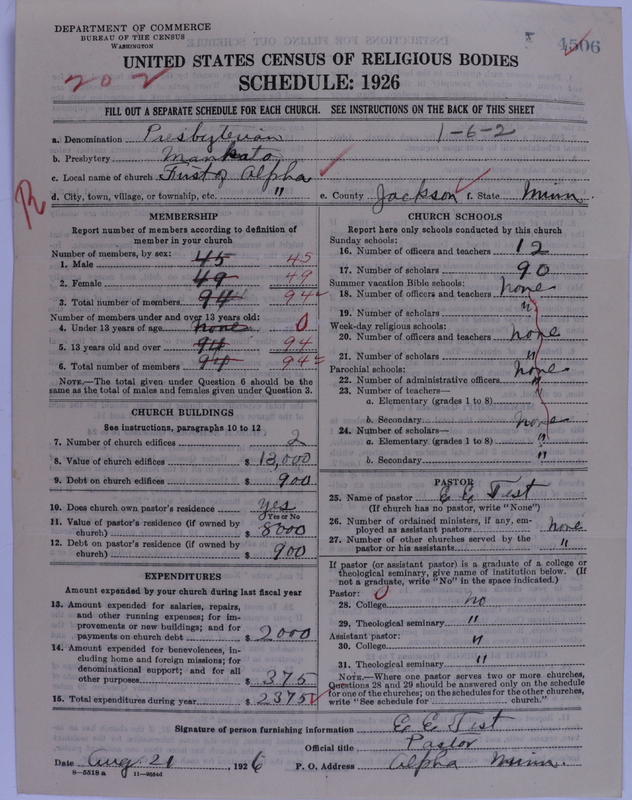 DEPARTMENT OF COMMERCE
BUREAU OF THE CENSUS
WASHINGTON
4506
UNITED STATES CENSUS OF RELIGIOUS BODIES
202
SCHEDULE: 1926
FILL OUT A SEPARATE SCHEDULE FOR EACH CHURCH. SEE INSTRUCTIONS ON THE BACK OF THIS SHEET
a. Denomination Presbyterian 1-6-2
b. Presbytery Mankato
c. Local name of church First of Alpha
d. City, town, village, or township, etc. " e. County Jackson f. State Minn.
R
MEMBERSHIP
Report number of members according to definition of
member in your church
Number of members, by sex:
1. Male 45 45
2. Female 49 49
3. Total number of members 94 94
Number of members under and over 13 years old:
4. Under 13 years of age none 0
5. 13 years old and over 94 94
6. Total number of members 94 94
NOTE.—The total given under Question 6 should be the
same as the total of males and females given under Question 3.
CHURCH BUILDINGS
See instructions, paragraphs 10 to 12
7. Number of church edifices 2
8. Value of church edifices $ 13,000
9. Debt on church edifices $ 900
10. Does church own pastor's residence yes
Yes or No
11. Value of pastor's residence (if owned by
church) $ 8000
12. Debt on pastor's residence (if owned by
church) $ 900
EXPENDITURES
Amount expended by your church during last fiscal year
13. Amount expended for salaries, repairs,
and other running expenses; for im-
provements or new buildings; and for
payments on church debt $ 2000
14. Amount expended for benevolences, in-
cluding home and foreign missions; for
denominational support; and for all
other purposes $ 375
15. Total expenditures during year $ 2375
CHURCH SCHOOLS
Report here only schools conducted by this church
Sunday schools:
16. Number of officers and teachers 12
17. Number of scholars 90
Summer vacation Bible schools:
18. Number of officers and teachers none
19. Number of scholars "
Week-day religious schools:
20. Number of officers and teachers none
21. Number of scholars "
Parochial schools: none
22. Number of administrative officers "
23. Number of teachers—
a. Elementary (grades 1 to 8)
b. Secondary none
24. Number of scholars—
a. Elementary (grades 1 to 8) "
b. Secondary "
PASTOR
25. Name of pastor E E Tist
(If church has no pastor, write "None")
26. Number of ordained ministers, if any, em-
ployed as assistant pastors none
27. Number of other churches served by the
pastor or his assistants "
If pastor (or assistant pastor) is a graduate of a college or
theological seminary, give name of institution below. (If
not a graduate, write "No" in the space indicated.)
Pastor: 0
28. College no
29. Theological seminary "
Assistant pastor:
30. College "
31. Theological seminary "
NOTE.—Where one pastor serves two or more churches,
Questions 28 and 29 should be answered only on the schedule
for one of the churches; on the schedules for the other churches,
write "See schedule for church."
Signature of person furnishing information E E Tist
Official title Pastor
Date Aug. 21, 1926 P. O. Address Alpha Minn.
8—5518 a 11—9564d